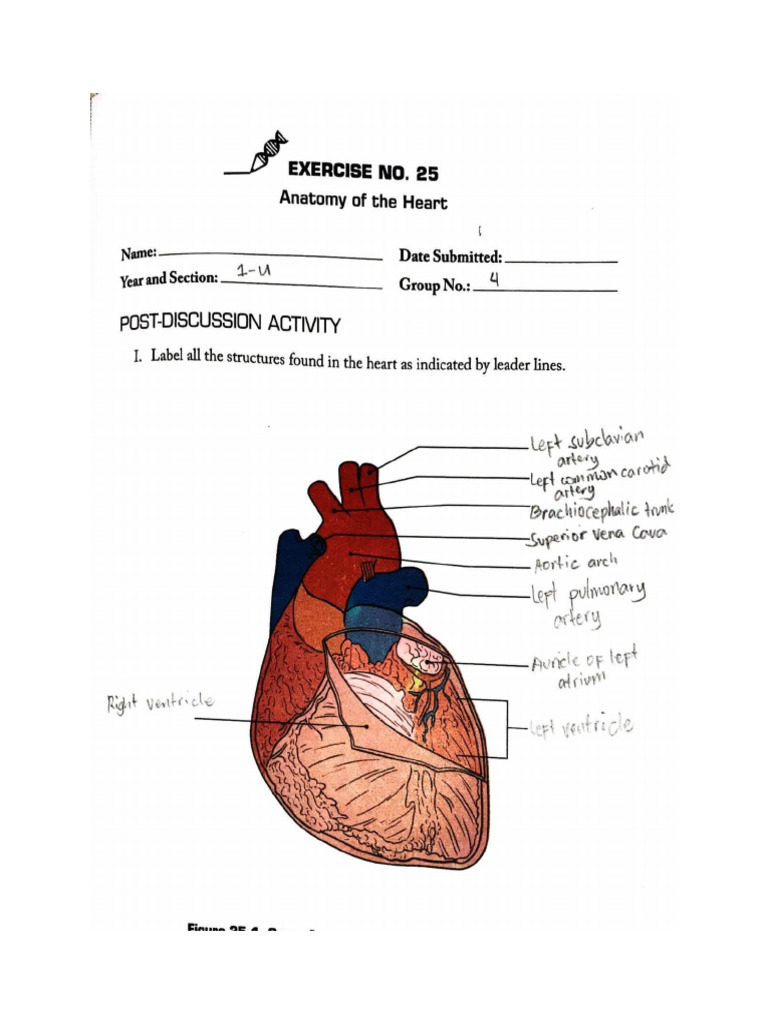 EXERCISE NO. 25
Anatomy of the Heart
Name:
Date Submitted:
Year and Section: 1-U
Group No.: 4
POST-DISCUSSION ACTIVITY
I. Label all the structures found in the heart as indicated by leader lines.
Left subclavian
artery
Left common carotid
artery
Brachiocephalic trunk
Superior Vena Cava
Aortic arch
Left pulmonary
artery
Auricle of left
atrium
Right ventricle
Left ventricle